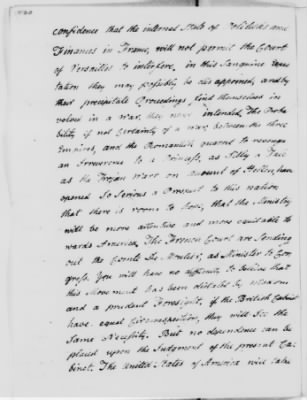 confidence that the internal State of Politicks and
Finances in France, will not permit the Court
of Versailles to interfere, in this Sanguine Expec
tation they may possibly be disappointed, and by
their precipitate Proceedings, find themselves in
volved in a War, they never intended, The Proba
bility if not Certainty of a War, between the three
Empires, and the
an Irreverence to a Princess, as Silly a Tale
as the Trojan War on account of Helen, have
opened So Serious a Prospect to this nation
that there is room to hope, that the Ministry
will be more attentive and more equitable to
wards America, The French Court are Sending
out the Comte De Moutier, as Minister to Con
gress. You will have no difficulty to believe that
this Movement has been dictated by
and a prudent Foresight, if the British Cabinet
have equal Circumspection, they will See the
Same Necessity. But no dependence can be
placed upon the Judgment of the present Ca
binet. The United States of America will take